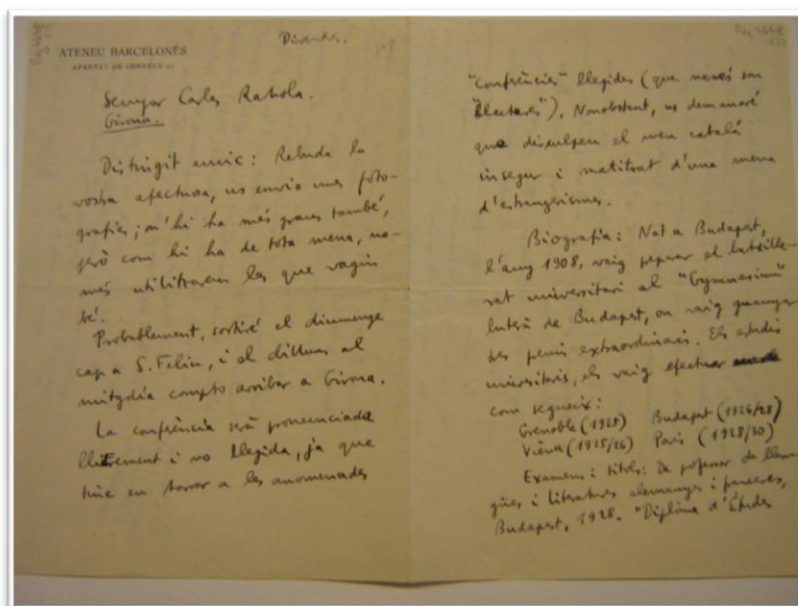 ATENEU BARCELONÉS
APARTAT DE CORREUS
Divendres.
Senyor Carles Rahola.
Girona.
Distingit amic: Rebuda la
vostra afectuosa, us envio unes foto-
grafies; n'hi ha més grans també,
però com hi ha de tota mena, no-
més utilitzarem les que vagin
bé.
Probablement, sortiré el diumenge
cap a S. Feliu, i el dilluns al
mitgdia compto arribar a Girona.
La conferència serà pronunciada
lliurement i no llegida, ja que
tinc un horror a les anomenades
"conferències" llegides (que només son
"lectures"). Nonobstant, us demanaré
que disculpeu el meu català
insegur i matitzat d'una mena
d'estrangerismes.
Biografia: Nat a Budapest,
l'any 1908, vaig preparar el batxille-
rat universitari al "Gymnasium"
luterà de Budapest, on vaig guanyar
tres premis extraordinaris. Els estudis
universitaris, els vaig efectuar
com segueix:
Grenoble (1925) Budapest (1926/28)
Viena (1925/26) Paris (1928/30)
Examens i títols: De professor de llen-
gües i literatures alemanyes i franceses,
Budapest, 1928. "Diplôme d'Études